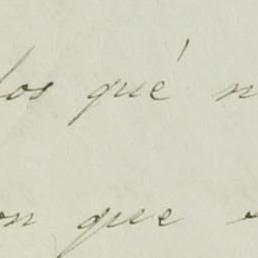 los qué n
on que e